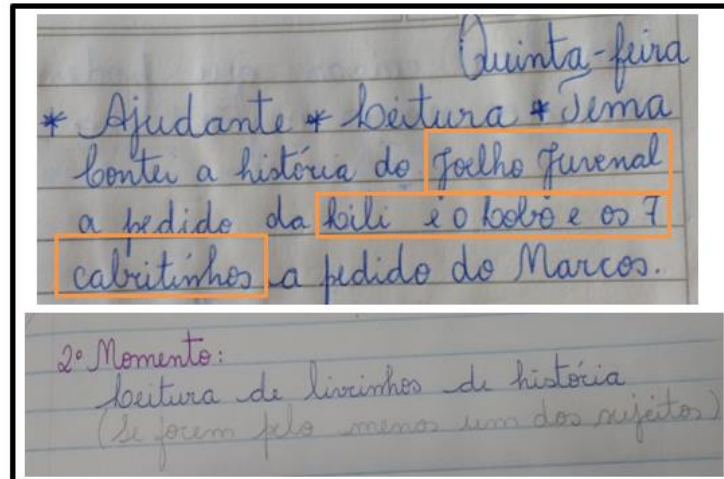 Quinta-feira
* Ajudante * Leitura * Tema
Contei a história do Joelho Juvenal
a pedido da Lili e o Lobo e os 7
cabritinhos a pedido do Marcos.
2º Momento:
Leitura de livrinhos de história
(Se forem pelo menos um dos sujeitos)